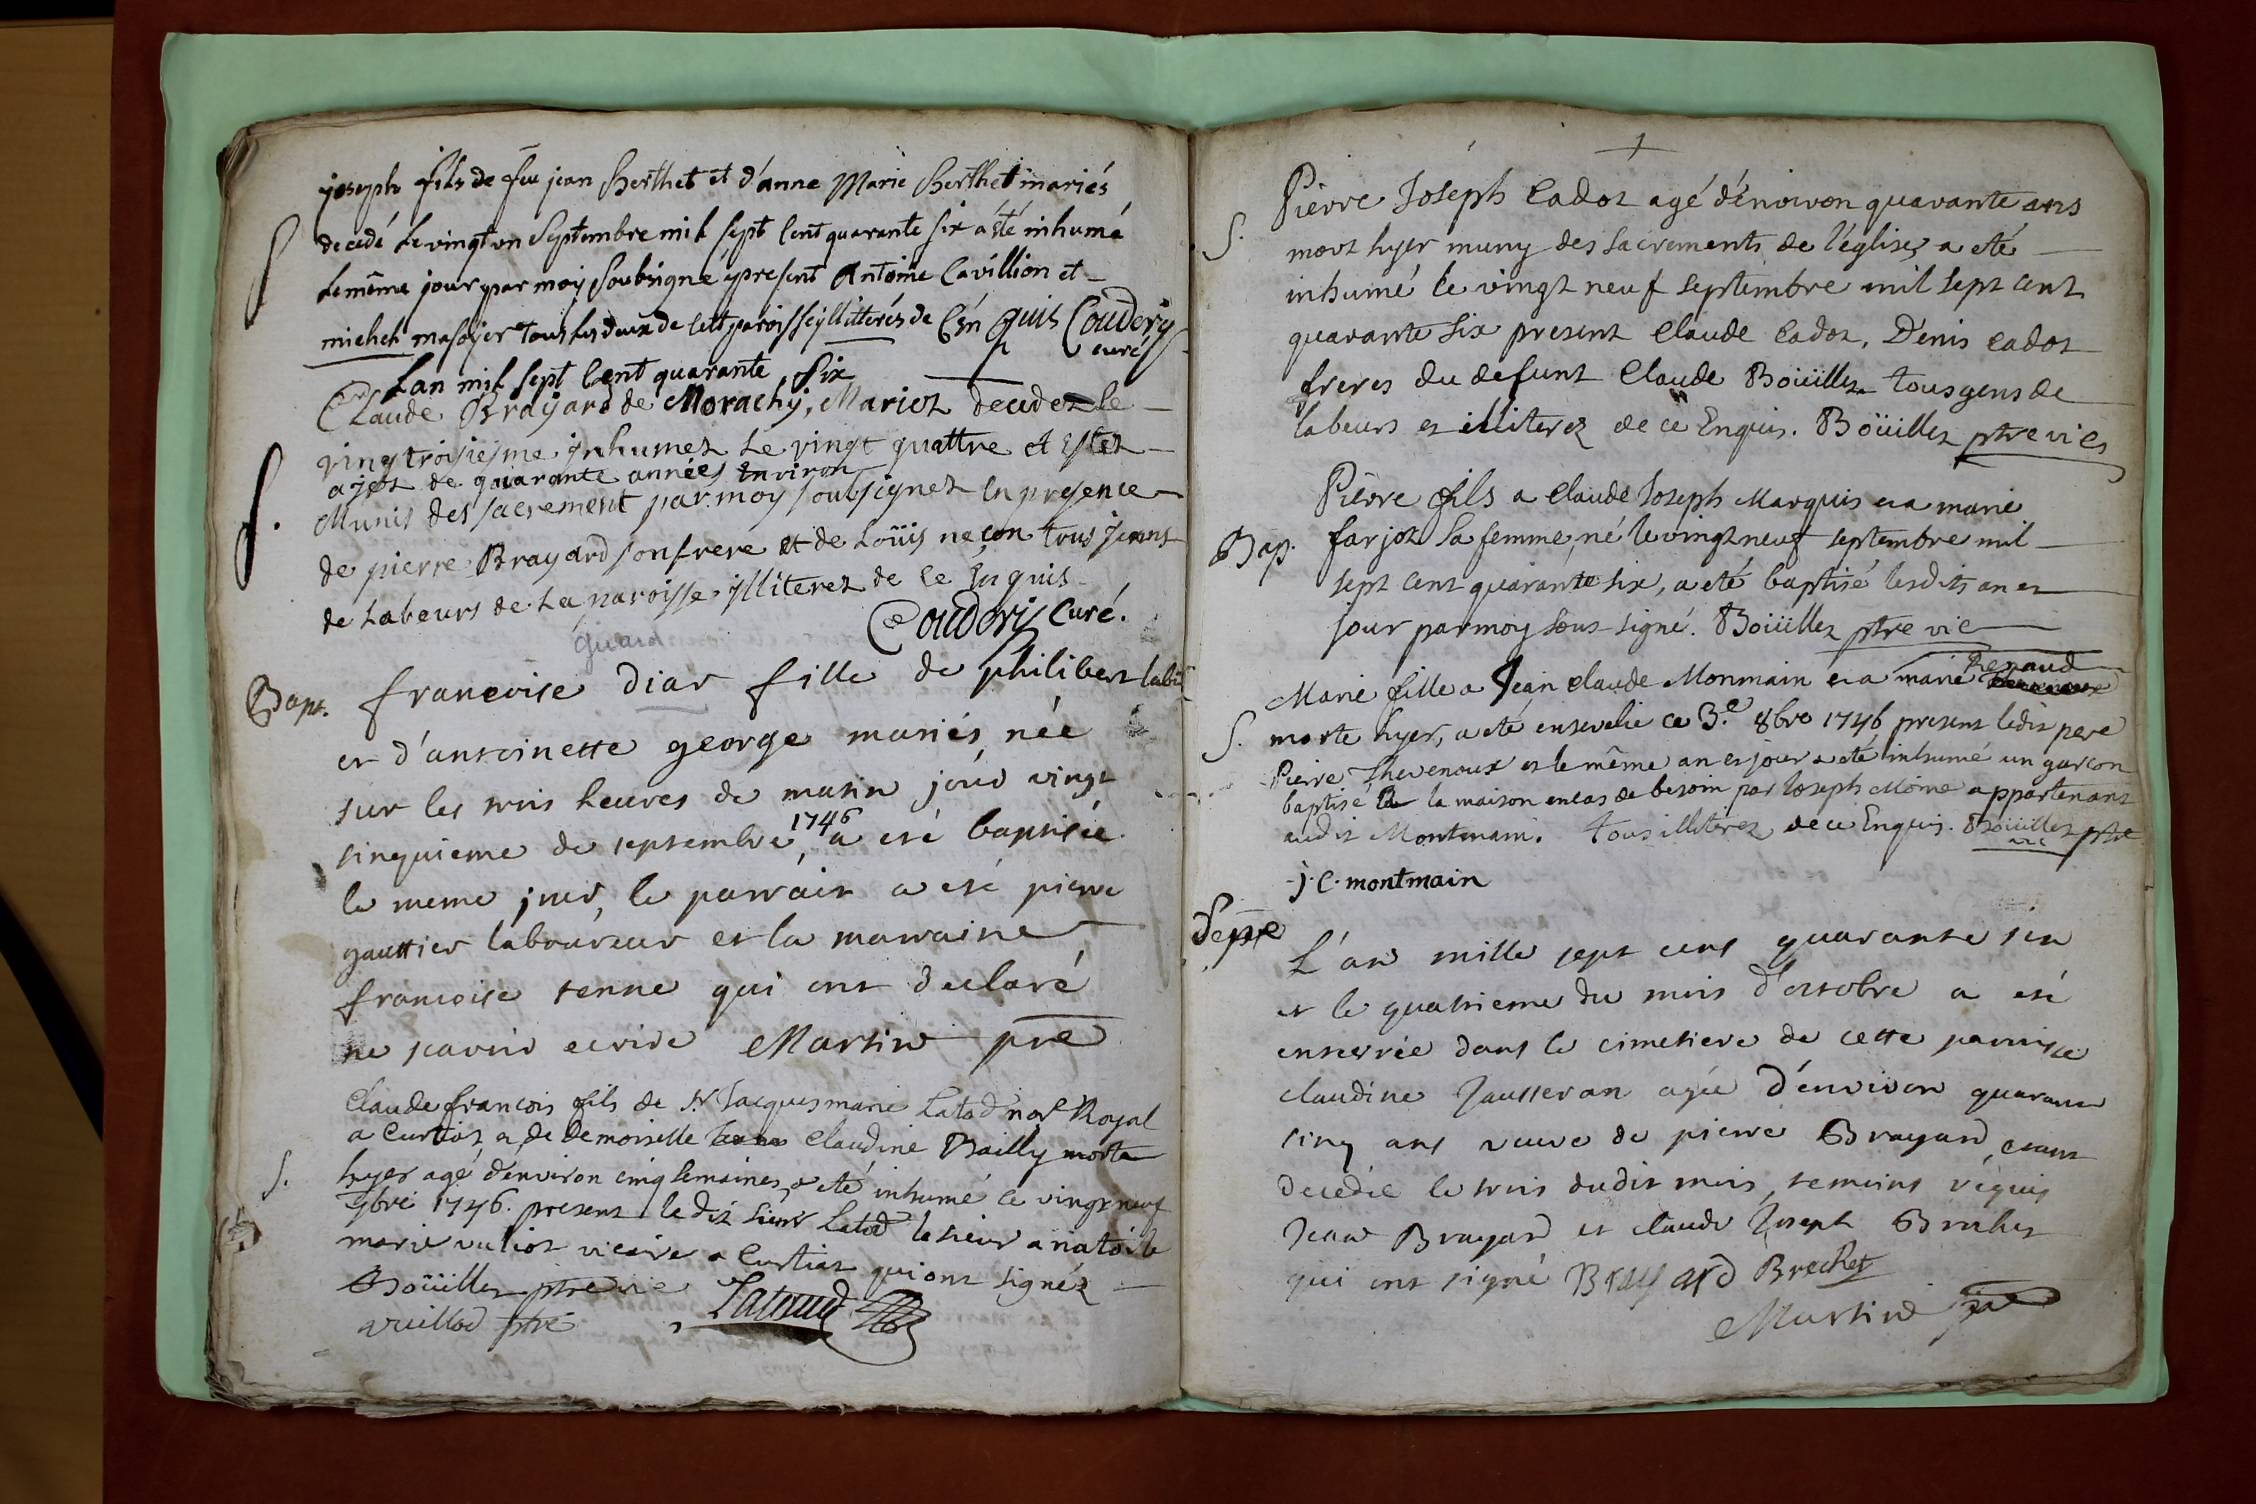 joseph fils de feu jean Berthet et d'anne Marie Berthet mariés
S
decedé le vingt un Septembre mil sept Cent quarante six a été inhumé
le même jour par moy Soubsigné present Antoine Cavillion et
michel masoyer tous les deux de cett paroisse yllitterés de C'en quis Coudery
curé
Lan mil sept Cent quarante six
Claude Brayard de Morachy, Mariot decedez le
S.
vingtroisiesme jnhumez le vingt quattre et estez
agez de quarante années environ
Munis des sacrement par moy soubsignez en presence
de pierre Brayard son frere et de Loüis neçon tous jeans
de Labeurs de La paroisse jlliterez de Ce Enquis
Coudery Curé.
guiard
Bapt. francoise diar fille de philibert lab
et d'antoinette george mariés née
sur les trois heures de matin jour vingt
cinquieme de septembre 1746 a eté baptisée
le meme jour, le parrain a eté pierre
gauttier laboureur et la marraine
francoise tenne qui ont declaré
ne scavoir ecrire Martin pre
Claude francois fils de Sr Jacques marie Latod nore Royal
a Curtiat, a, de Demoiselle Claudine Bailly morte
S. hyer agé d'environ cinq semaines, a eté inhumé ce vingt neuf
7bre 1746. present le dit sieur Latod le sieur anatoile
marie vuliot vicaire a Curtiat qui ont signéz
Boüillez ptre vic
avuillod ptre Latoud
Pierre Joseph Cadot agé d'environ quarante ans
S. mort hyer muny des Sacrements de l'église, a eté
inhumé le vingt neuf septembre mil sept cent
quarante six present Claude Cadot, Denis Cadot
freres du defunt Claude Boüillez tous gens de
labeurs et illiterez de ce Enquis. Boüillez ptre vic
Pierre fils a Claude Joseph Marquis et a marie
Bap. farjot Sa femme, né le vingt neuf septembre mil
sept cent quarante six, a eté baptisé lesdits an et
jour par moy sous signé. Boüillez ptre vic
Marie fille a Jean Claude Monmain et a marie Renaud
S. morte hyer, a eté ensevelie ce 3.e 8bre 1746 present ledit pere
Pierre Thevenoux et le même an et jour a eté inhumé un garcon
baptisé a la maison en cas de besoin par Joseph Moine appartenant
audit Montmain. Tous illiterez de ce Enquis. Boüillez ptre
vic
j. c. montmain
Sepre
L'an mille sept cens quarante six
et le quatrieme du mois d'octobre a eté
enterrée dans le cimetiere de cette parroisse
claudine Jausseran agée d'environ quarante
cinq ans veuve de pierre Brayard etant
decedée le trois dudit mois, temoins requis
Jean Brayard et claude Joseph Brochet
qui ont signé Brayard Brechet
Martin pre